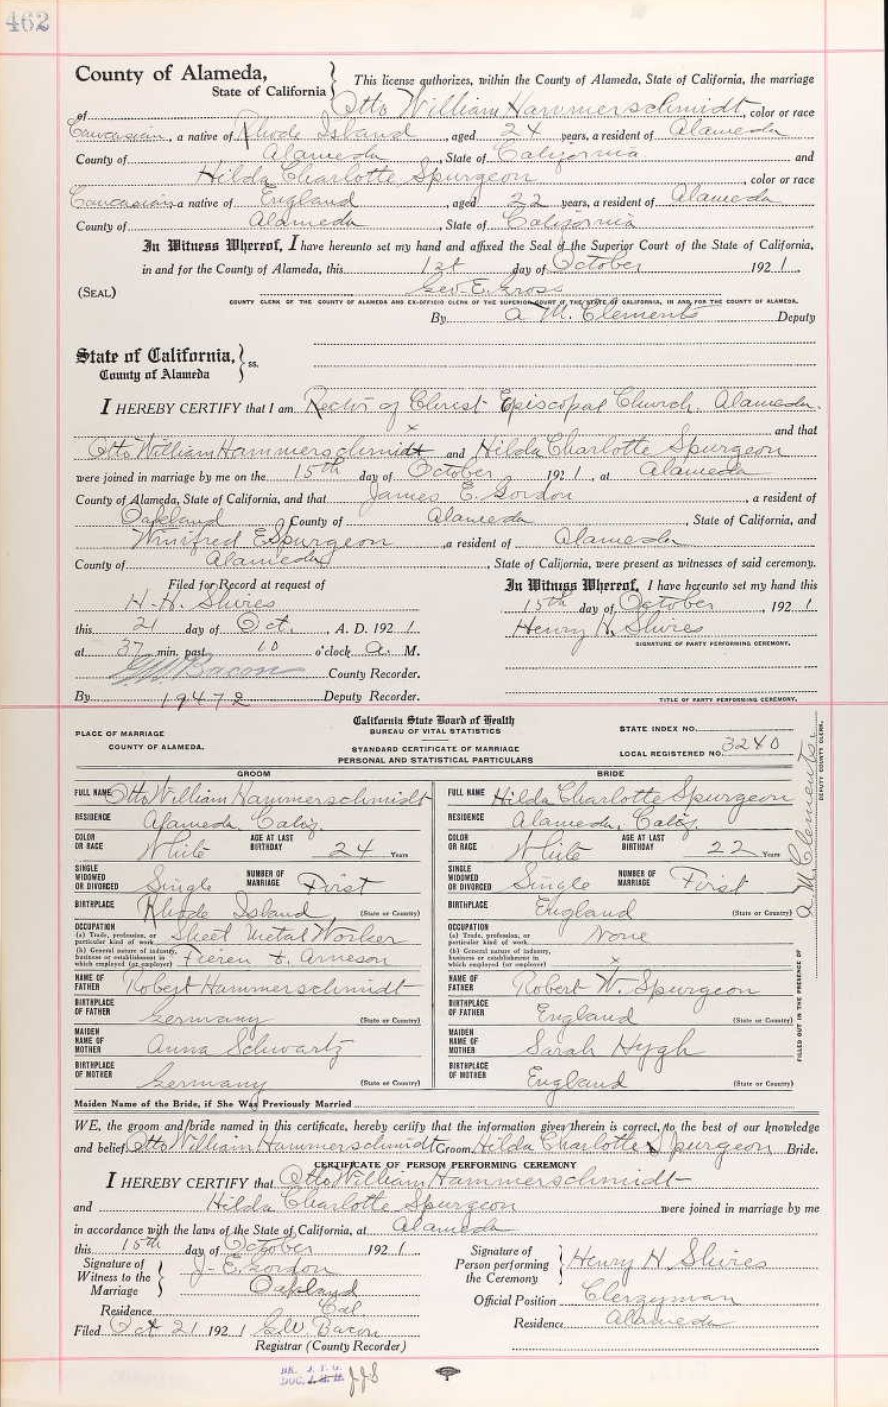 462
County of Alameda,
State of California
This license authorizes, within the County of Alameda, State of California, the marriage
of Otto William Hammerschmidt, color or race
Caucasian, a native of Rhode Island, aged 24 years, a resident of Alameda
County of Alameda, State of California and
Hilda Charlotte Spurgeon, color or race
Caucasian a native of England, aged 22 years, a resident of Alameda
County of Alameda, State of California
In Witness Whereof, I have hereunto set my hand and affixed the Seal of the Superior Court of the State of California,
in and for the County of Alameda, this 1st day of October 1921.
(SEAL) Geo. E. Gross
COUNTY CLERK OF THE COUNTY OF ALAMEDA AND EX-OFFICIO CLERK OF THE SUPERIOR COURT OF THE STATE OF CALIFORNIA, IN AND FOR THE COUNTY OF ALAMEDA.
By A. M. Clements Deputy
State of California, } ss.
County of Alameda
I HEREBY CERTIFY that I am Rector of Christ Episcopal Church, Alameda.
x and that
Otto William Hammerschmidt and Hilda Charlotte Spurgeon
were joined in marriage by me on the 15th day of October 1921, at Alameda
County of Alameda, State of California, and that James E. Gordon, a resident of
Oakland County of Alameda, State of California, and
Winifred E Spurgeon, a resident of Alameda
County of Alameda, State of California, were present as witnesses of said ceremony.
Filed for Record at request of
H. H. Shires
this 21 day of Oct., A. D. 1921.
at 37 min. past 10 o'clock A. M.
G W Bacon County Recorder.
By 19472 Deputy Recorder.
In Witness Whereof, I have hereunto set my hand this
15th day of October, 1921
Henry H. Shires
SIGNATURE OF PARTY PERFORMING CEREMONY.
TITLE OF PARTY PERFORMING CEREMONY.
PLACE OF MARRIAGE
COUNTY OF ALAMEDA.
California State Board of Health
BUREAU OF VITAL STATISTICS
STANDARD CERTIFICATE OF MARRIAGE
PERSONAL AND STATISTICAL PARTICULARS
STATE INDEX NO.
LOCAL REGISTERED NO. 3240
GROOM
FULL NAME Otto William Hammerschmidt
RESIDENCE Alameda, Calif.
COLOR OR RACE White AGE AT LAST BIRTHDAY 24 Years
SINGLE WIDOWED OR DIVORCED Single NUMBER OF MARRIAGE First
BIRTHPLACE Rhode Island (State or Country)
OCCUPATION
(a) Trade, profession, or particular kind of work Sheet Metal Worker
(b) General nature of industry, business or establishment in which employed (or employer) Fieren & Arneson
NAME OF FATHER Robert Hammerschmidt
BIRTHPLACE OF FATHER Germany (State or Country)
MAIDEN NAME OF MOTHER Anna Schwartz
BIRTHPLACE OF MOTHER Germany (State or Country)
BRIDE
FULL NAME Hilda Charlotte Spurgeon
RESIDENCE Alameda, Calif.
COLOR OR RACE White AGE AT LAST BIRTHDAY 22 Years
SINGLE WIDOWED OR DIVORCED Single NUMBER OF MARRIAGE First
BIRTHPLACE England (State or Country)
OCCUPATION
(a) Trade, profession, or particular kind of work None
(b) General nature of industry, business or establishment in which employed (or employer) x
NAME OF FATHER Robert W. Spurgeon
BIRTHPLACE OF FATHER England (State or Country)
MAIDEN NAME OF MOTHER Sarah Hygh
BIRTHPLACE OF MOTHER England (State or Country)
FILLED OUT IN THE PRESENCE OF A M Clements, DEPUTY COUNTY CLERK.
Maiden Name of the Bride, if She Was Previously Married
WE, the groom and bride named in this certificate, hereby certify that the information given therein is correct, to the best of our knowledge
and belief Otto William Hammerschmidt Groom Hilda Charlotte Spurgeon Bride.
CERTIFICATE OF PERSON PERFORMING CEREMONY
I HEREBY CERTIFY that Otto William Hammerschmidt
and Hilda Charlotte Spurgeon were joined in marriage by me
in accordance with the laws of the State of California, at Alameda
this 15th day of October 1921.
Signature of Witness to the Marriage } J. E. Gordon
Oakland
Residence Cal.
Filed Oct 21 1921 G W Bacon
Registrar (County Recorder)
Signature of Person performing the Ceremony } Henry H. Shires
Official Position Clergyman
Residence Alameda
BK. J. T. G.
DOC. J. H. H. JJS